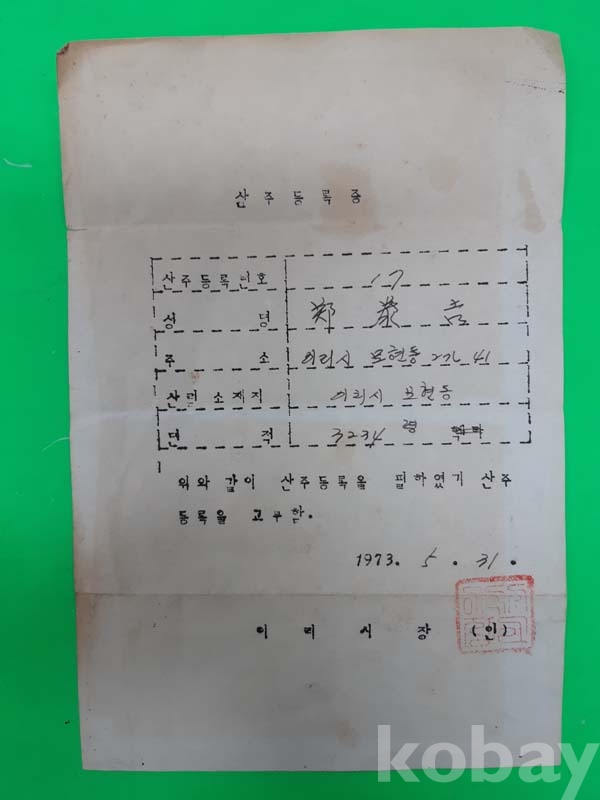 산주등록증
산주등록번호 17
성명 鄭 吉
주소 이리시 모현동 2가 41
산의 소재지 이리시 모현동
면적 3234
위와 같이 산주등록을 필하였기 산주
등록을 교부함.
1973. 5. 31.
이리시장 (인)
kobay